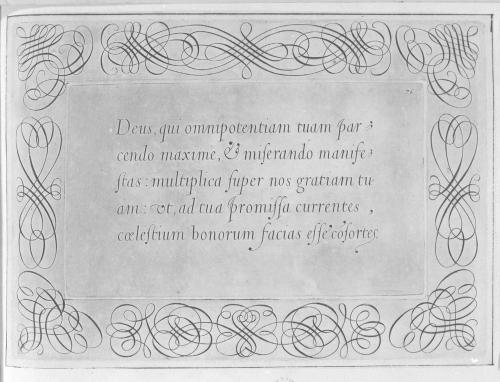 Deus, qui omnipotentiam tuam par⸗
cendo maxime, & miſerando manife⸗
ſtas: multiplica ſuper nos gratiam tu
am: vt, ad tua promiſſa currentes,
cœleſtium bonorum facias eſſe cõſortes.